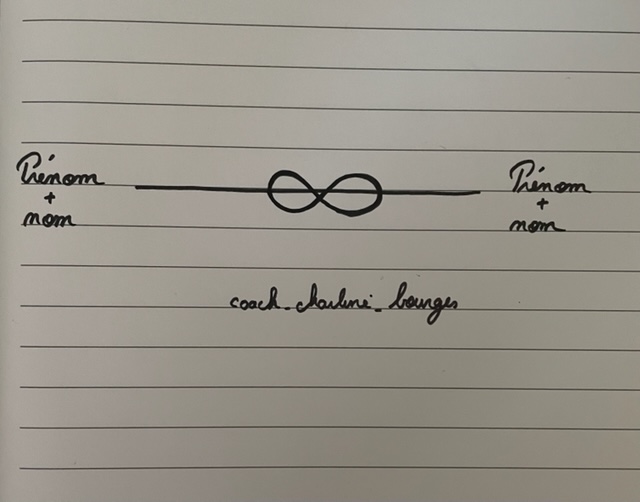 Prénom Prénom
+ +
nom nom
coach_charlene_bourges